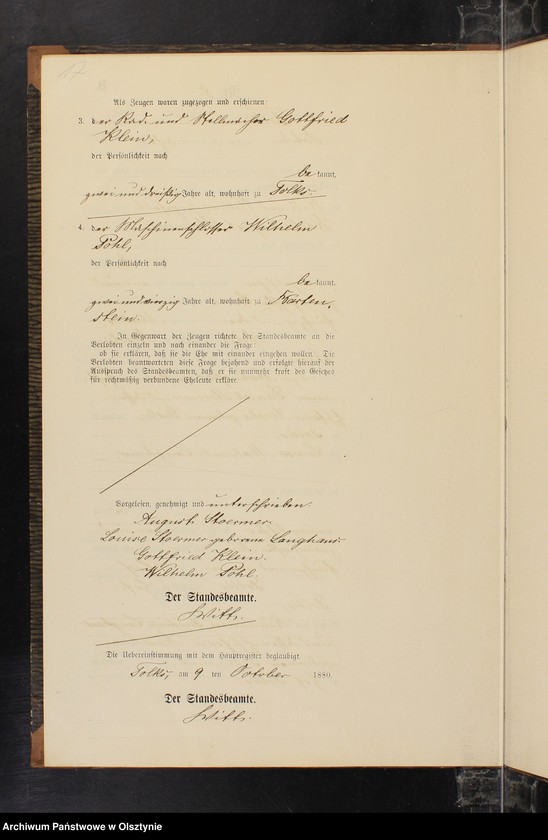 17
Als Zeugen waren zugezogen und erschienen:
3. der Rad- und Stellmacher Gottfried
Klein,
der Persönlichkeit nach
be kannt,
zwei und dreißig Jahre alt, wohnhaft zu Tolks.
4. der Maschinenschlosser Wilhelm
Pohl,
der Persönlichkeit nach
be kannt,
zwei und vierzig Jahre alt, wohnhaft zu Barten-
stein.
In Gegenwart der Zeugen richtete der Standesbeamte an die
Verlobten einzeln und nach einander die Frage:
ob sie erklären, daß sie die Ehe mit einander eingehen wollen. Die
Verlobten beantworteten diese Frage bejahend und erfolgte hierauf der
Ausspruch des Standesbeamten, daß er sie nunmehr kraft des Gesetzes
für rechtmäßig verbundene Eheleute erkläre.
Vorgelesen, genehmigt und unterschrieben.
August Stoermer
Louise Stoermer geborene Langhans
Gottfried Klein.
Wilhelm Pohl.
Der Standesbeamte.
Witt.
Die Uebereinstimmung mit dem Hauptregister beglaubigt
Tolks, am 9 ten October 1880.
Der Standesbeamte.
Witt.
Archiwum Państwowe w Olsztynie